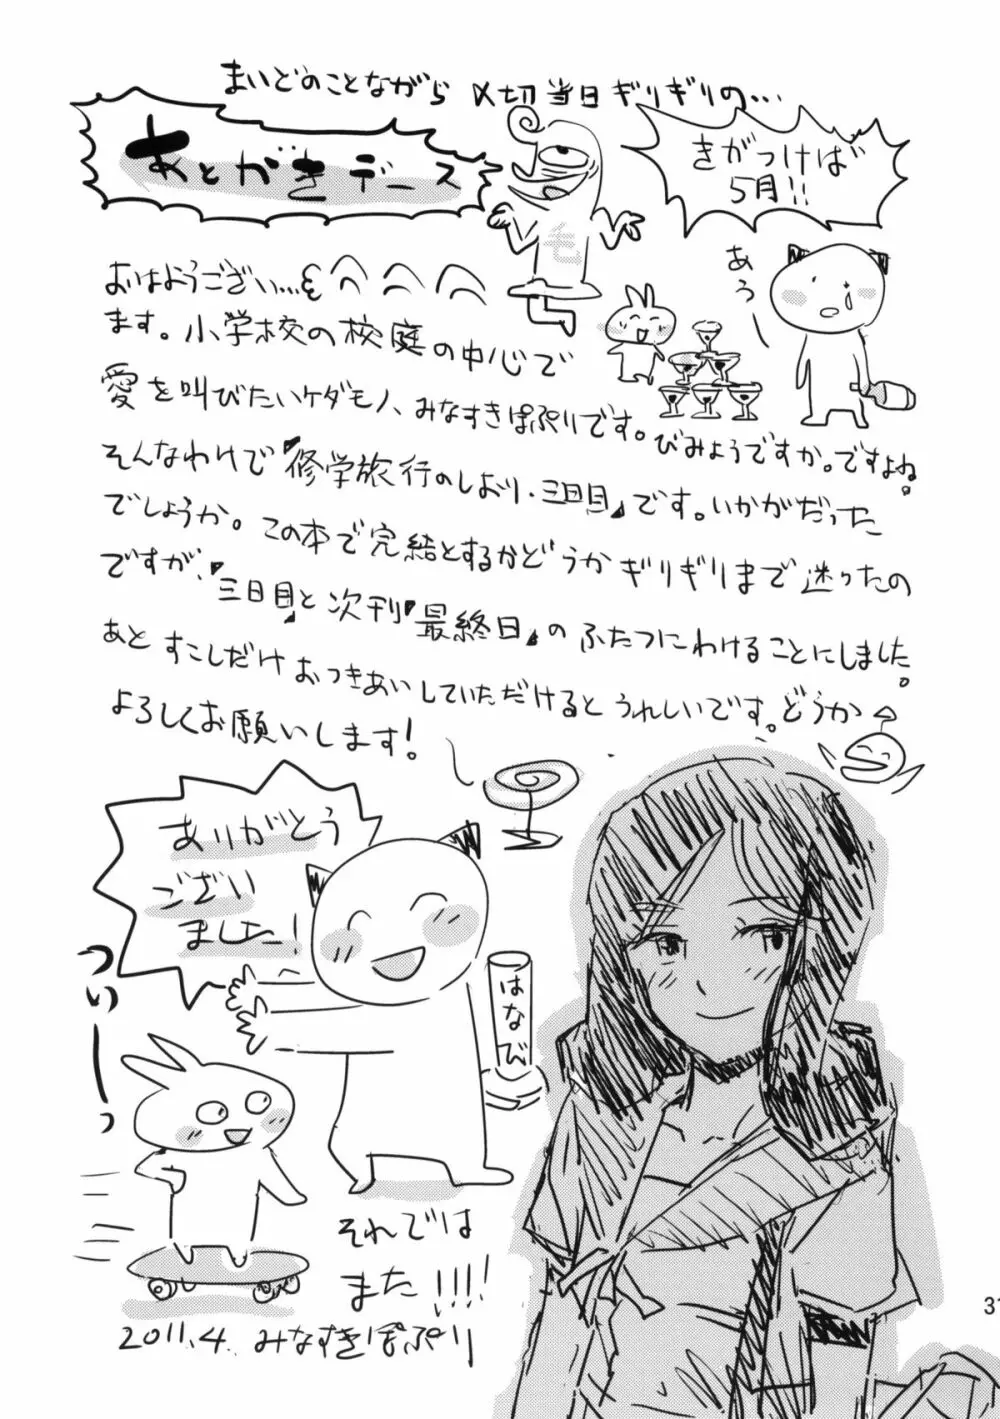 まいどのことながら〆切当日ギリギリの…
あとがきデース
きがつけば
5月!!
毛
あうー
おはようござい…
ます。小学校の校庭の中心で
愛を叫びたいケダモノ、みなすきぽぷりです。びみょうですか。ですよね。
そんなわけで『修学旅行のしおり・三日目』です。いかがだった
でしょうか。この本で完結とするかどうかギリギリまで迷ったの
ですが、『三日目』と次刊『最終日』のふたつにわけることにしました。
あとすこしだけおつきあいしていただけるとうれしいです。どうか
よろしくお願いします!
ありがとう
ござい
ました!
ついーっ
はなび
それでは
また!!!!
2011.4. みなすきぽぷり